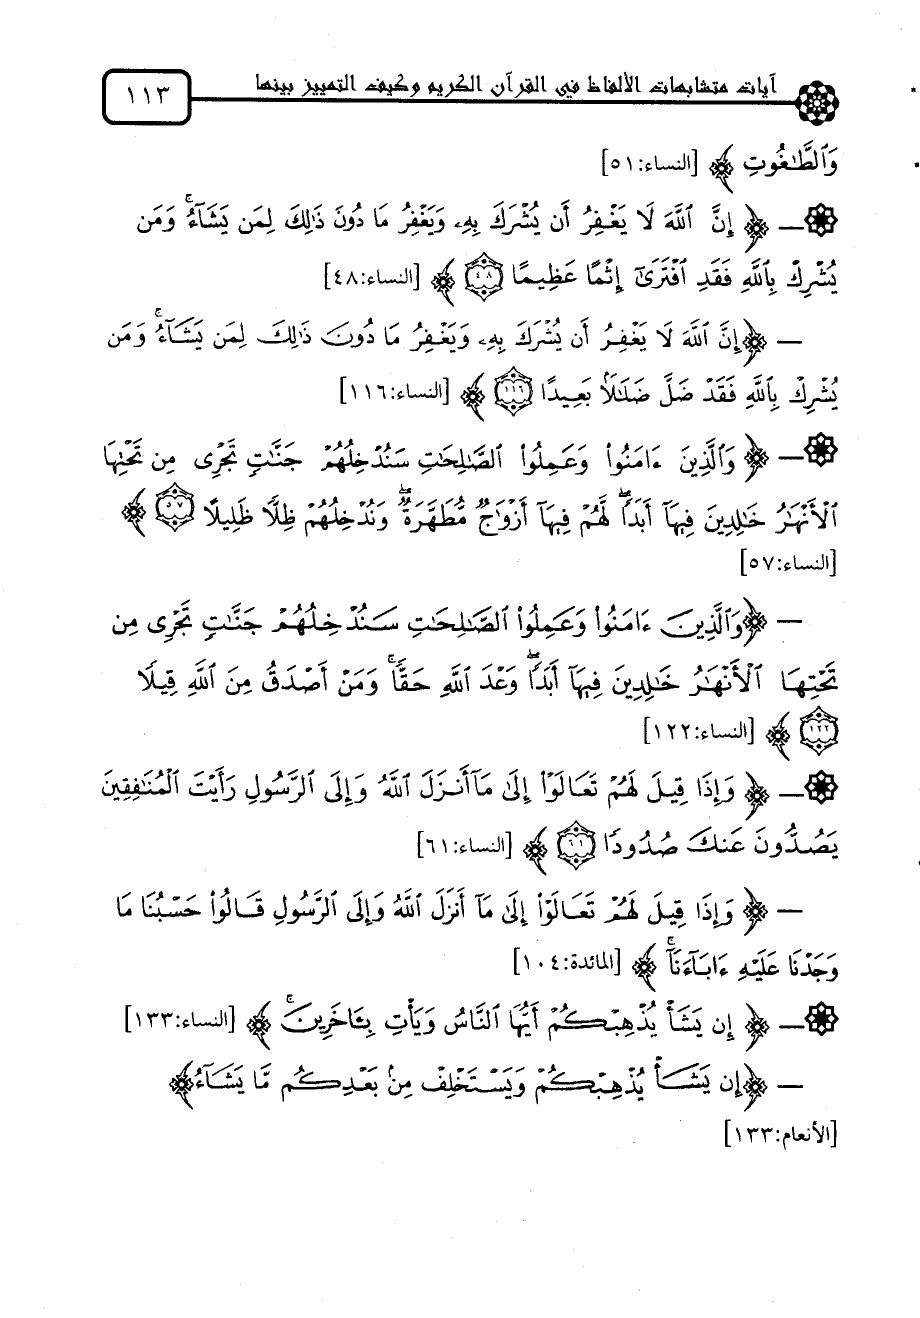 آيات متشابهات الألفاظ في القرآن الكريم وكيف التمييز بينها ١١٣
وَٱلطَّٰغُوتِ ﴾ [النساء:٥١]
ــ ﴿ إِنَّ ٱللَّهَ لَا يَغْفِرُ أَن يُشْرَكَ بِهِۦ وَيَغْفِرُ مَا دُونَ ذَٰلِكَ لِمَن يَشَآءُۚ وَمَن
يُشْرِكْ بِٱللَّهِ فَقَدِ ٱفْتَرَىٰٓ إِثْمًا عَظِيمًا ٤٨ ﴾ [النساء:٤٨]
ــ ﴿إِنَّ ٱللَّهَ لَا يَغْفِرُ أَن يُشْرَكَ بِهِۦ وَيَغْفِرُ مَا دُونَ ذَٰلِكَ لِمَن يَشَآءُۚ وَمَن
يُشْرِكْ بِٱللَّهِ فَقَدْ ضَلَّ ضَلَٰلًۢا بَعِيدًا ١١٦ ﴾ [النساء:١١٦]
ــ ﴿ وَٱلَّذِينَ ءَامَنُوا۟ وَعَمِلُوا۟ ٱلصَّٰلِحَٰتِ سَنُدْخِلُهُمْ جَنَّٰتٍ تَجْرِى مِن تَحْتِهَا
ٱلْأَنْهَٰرُ خَٰلِدِينَ فِيهَآ أَبَدًاۖ لَّهُمْ فِيهَآ أَزْوَٰجٌ مُّطَهَّرَةٌۖ وَنُدْخِلُهُمْ ظِلًّا ظَلِيلًا ٥٧ ﴾
[النساء:٥٧]
ــ ﴿وَٱلَّذِينَ ءَامَنُوا۟ وَعَمِلُوا۟ ٱلصَّٰلِحَٰتِ سَنُدْخِلُهُمْ جَنَّٰتٍ تَجْرِى مِن
تَحْتِهَا ٱلْأَنْهَٰرُ خَٰلِدِينَ فِيهَآ أَبَدًاۖ وَعْدَ ٱللَّهِ حَقًّاۚ وَمَنْ أَصْدَقُ مِنَ ٱللَّهِ قِيلًا
١٢٢ ﴾ [النساء:١٢٢]
ــ ﴿ وَإِذَا قِيلَ لَهُمْ تَعَالَوْا۟ إِلَىٰ مَآ أَنزَلَ ٱللَّهُ وَإِلَى ٱلرَّسُولِ رَأَيْتَ ٱلْمُنَٰفِقِينَ
يَصُدُّونَ عَنكَ صُدُودًا ٦١ ﴾ [النساء:٦١]
ــ ﴿ وَإِذَا قِيلَ لَهُمْ تَعَالَوْا۟ إِلَىٰ مَآ أَنزَلَ ٱللَّهُ وَإِلَى ٱلرَّسُولِ قَالُوا۟ حَسْبُنَا مَا
وَجَدْنَا عَلَيْهِ ءَابَآءَنَآۚ ﴾ [المائدة:١٠٤]
ــ ﴿ إِن يَشَأْ يُذْهِبْكُمْ أَيُّهَا ٱلنَّاسُ وَيَأْتِ بِـَٔاخَرِينَۚ ﴾ [النساء:١٣٣]
ــ ﴿إِن يَشَأْ يُذْهِبْكُمْ وَيَسْتَخْلِفْ مِنۢ بَعْدِكُم مَّا يَشَآءُ﴾
[الأنعام:١٣٣]